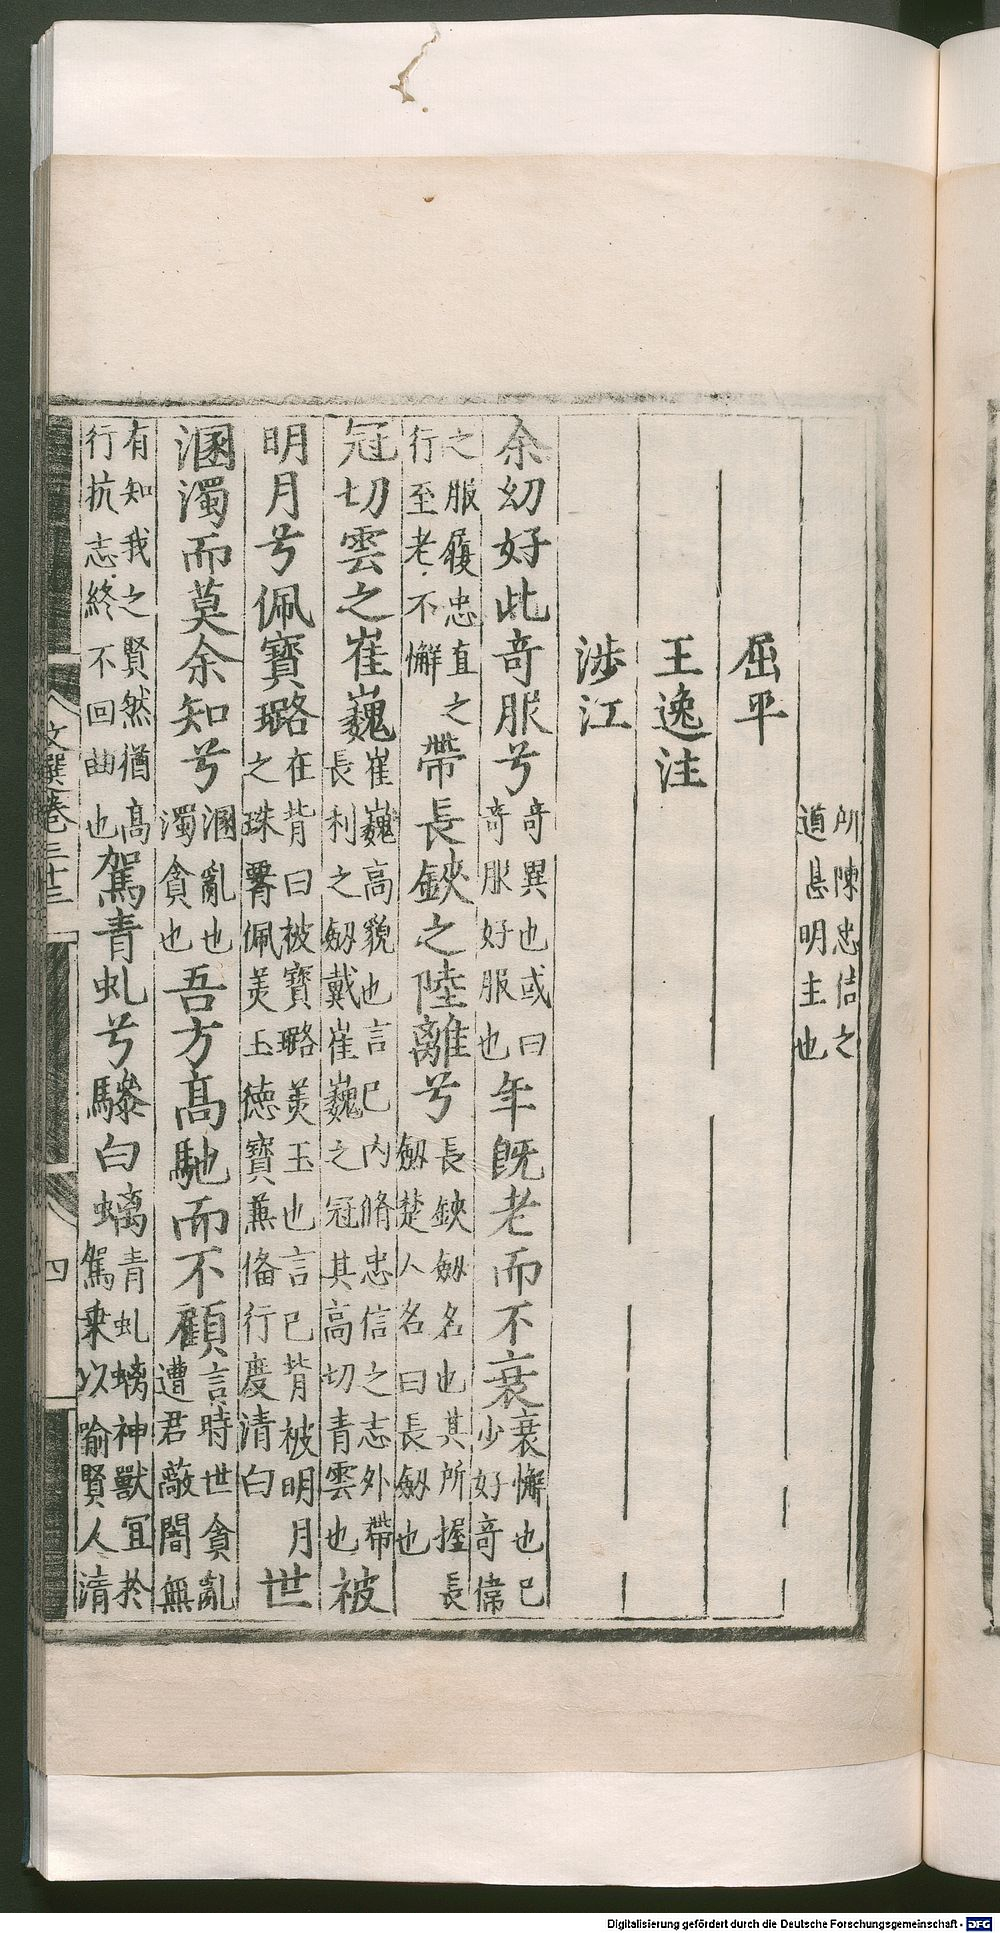 所陳忠信之
道甚明主也
屈平
王逸注
涉江
余幼好此奇服兮奇異也或曰奇服好服也年旣老而不衰衰懈也己少好奇偉
之服履忠直之行至老不懈帶長鋏之陸離兮長鋏劒名也其所握長劒楚人名曰長劒也
冠切雲之崔巍崔巍高貌也言己內脩忠信之志外帶長利之劒戴崔巍之冠其高切青雲也被
明月兮佩寶璐在背曰被寶璐美玉也言己背被明月之珠要佩美玉德寶兼俻行度清白世
溷濁而莫余知兮溷亂也濁貪也吾方高馳而不顧言時世貪亂遭君蔽闇無
有知我之賢然猶高行抗志終不回曲也駕青虬兮驂白螭青虬螭神獸冝於駕乗以喻賢人清
文選卷三十三
四
Digitalisierung gefördert durch die Deutsche Forschungsgemeinschaft - DFG